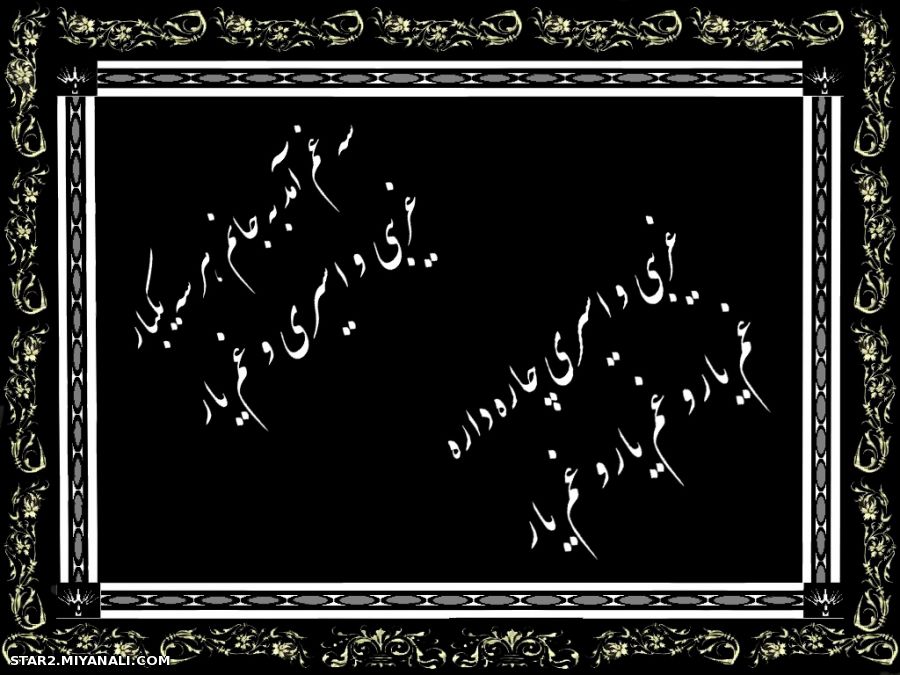 سه غم آمد به جانم هر سه یکبار
غریبی و اسیری و غم یار
غریبی و اسیری چاره داره
غم یار و غم یار و غم یار
STAR2.MIYANALI.COM